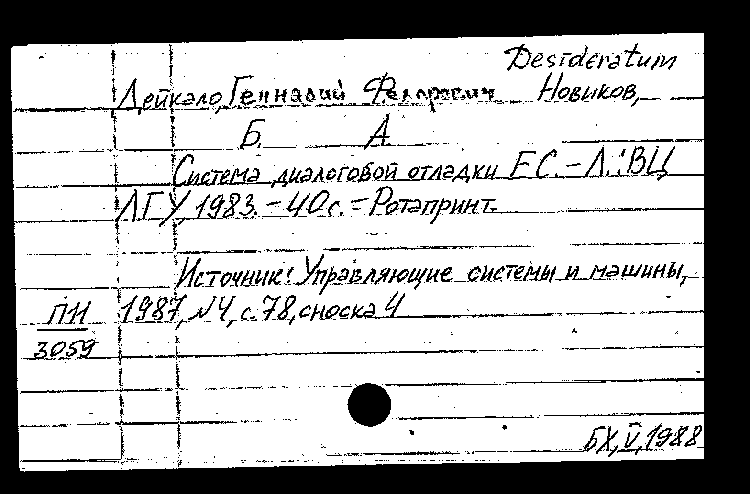 Desideratum
Дейкало, Геннадий Федорович Новиков,
Б. А.
Система диалоговой отладки ЕС. - Л.: ВЦ
ЛГУ, 1983. - 40 с. = Ротапринт.
Источник: Управляющие системы и машины,
ПН 1987, №4, с. 78, сноска 4
3059
БХ, V, 1988